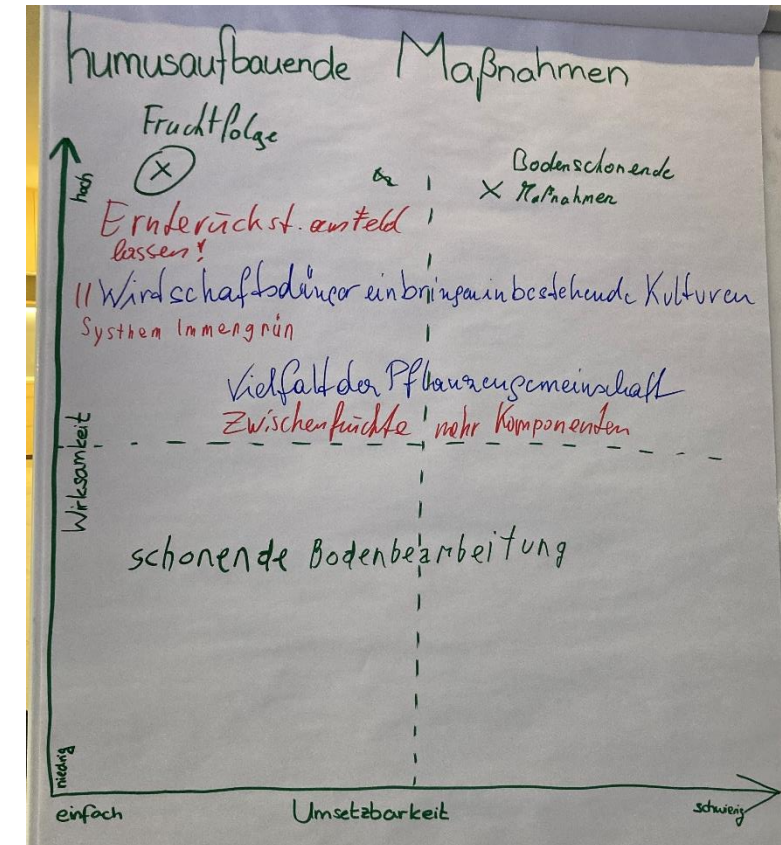 humusaufbauende Maßnahmen
Fruchtfolge
X
Bodenschonende
X Maßnahmen
hoch
Ernterückst. am Feld
lassen!
Wirdschaftsdünger einbringen in bestehende Kulturen
Systhem Immengrün
Vielfalt der Pflanzengemeinschaft
Zwischenfrüchte mehr Komponenten
Wirksamkeit
schonende Bodenbearbeitung
niedrig
einfach Umsetzbarkeit schwierig